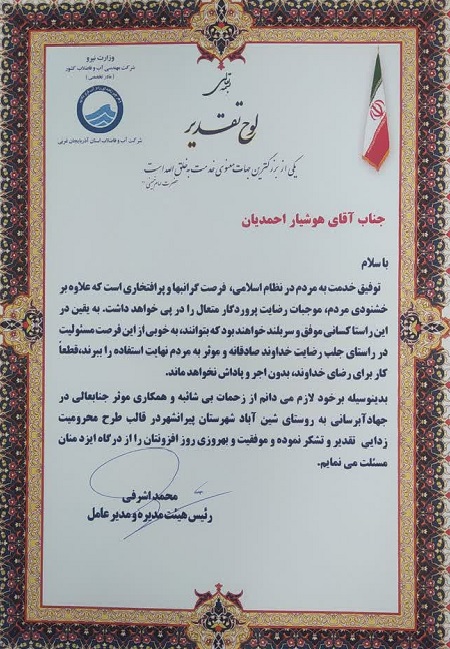 بسمه تعالی
وزارت نیرو
شرکت مهندسی آب و فاضلاب کشور
(مادر تخصصی)
شرکت آب و فاضلاب استان آذربایجان غربی
لوح تقدیر
یکی از بزرگترین جهات معنوی خدمت به خلق الله است
حضرت امام خمینی
جناب آقای هوشیار احمدیان
با سلام
توفیق خدمت به مردم در نظام اسلامی، فرصت گرانبها و پرافتخاری است که علاوه بر
خشنودی مردم، موجبات رضایت پروردگار متعال را در پی خواهد داشت. به یقین در
این راستا کسانی موفق و سربلند خواهند بود که بتوانند، به خوبی از این فرصت مسئولیت
در راستای جلب رضایت خداوند صادقانه و موثر به مردم نهایت استفاده را ببرند، قطعاً
کار برای رضای خداوند، بدون اجر و پاداش نخواهد ماند.
بدینوسیله برخود لازم می دانم از زحمات بی شائبه و همکاری موثر جنابعالی در
جهادآبرسانی به روستای شین آباد شهرستان پیرانشهردر قالب طرح محرومیت
زدایی تقدیر و تشکر نموده و موفقیت و بهروزی روز افزونتان را از درگاه ایزد منان
مسئلت می نمایم.
محمد اشرفی
رئیس هیئت مدیره و مدیر عامل